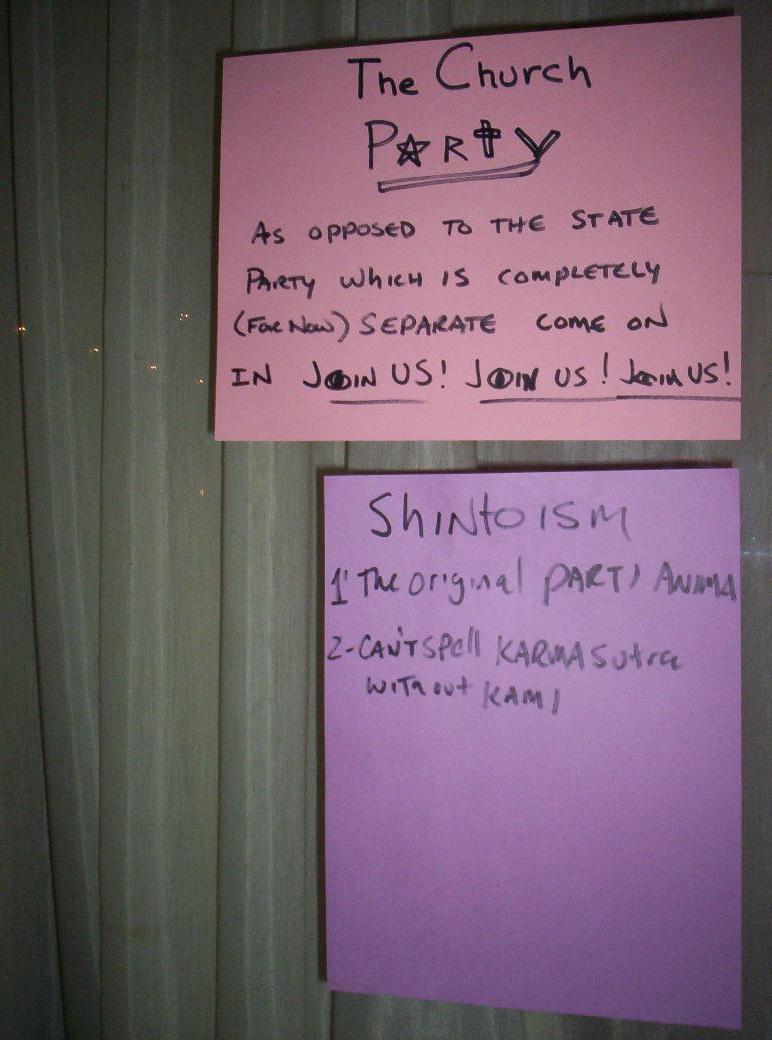 The Church
PARTY
AS OPPOSED TO THE STATE
PARTY WHICH IS COMPLETELY
(FOR NOW) SEPARATE COME ON
IN JOIN US! JOIN US! JOIN US!
ShINtOISM
1' The Original PARTY ANIMA
2-CAN'T SPell KARMA SUtra
WITHOUT KAMI